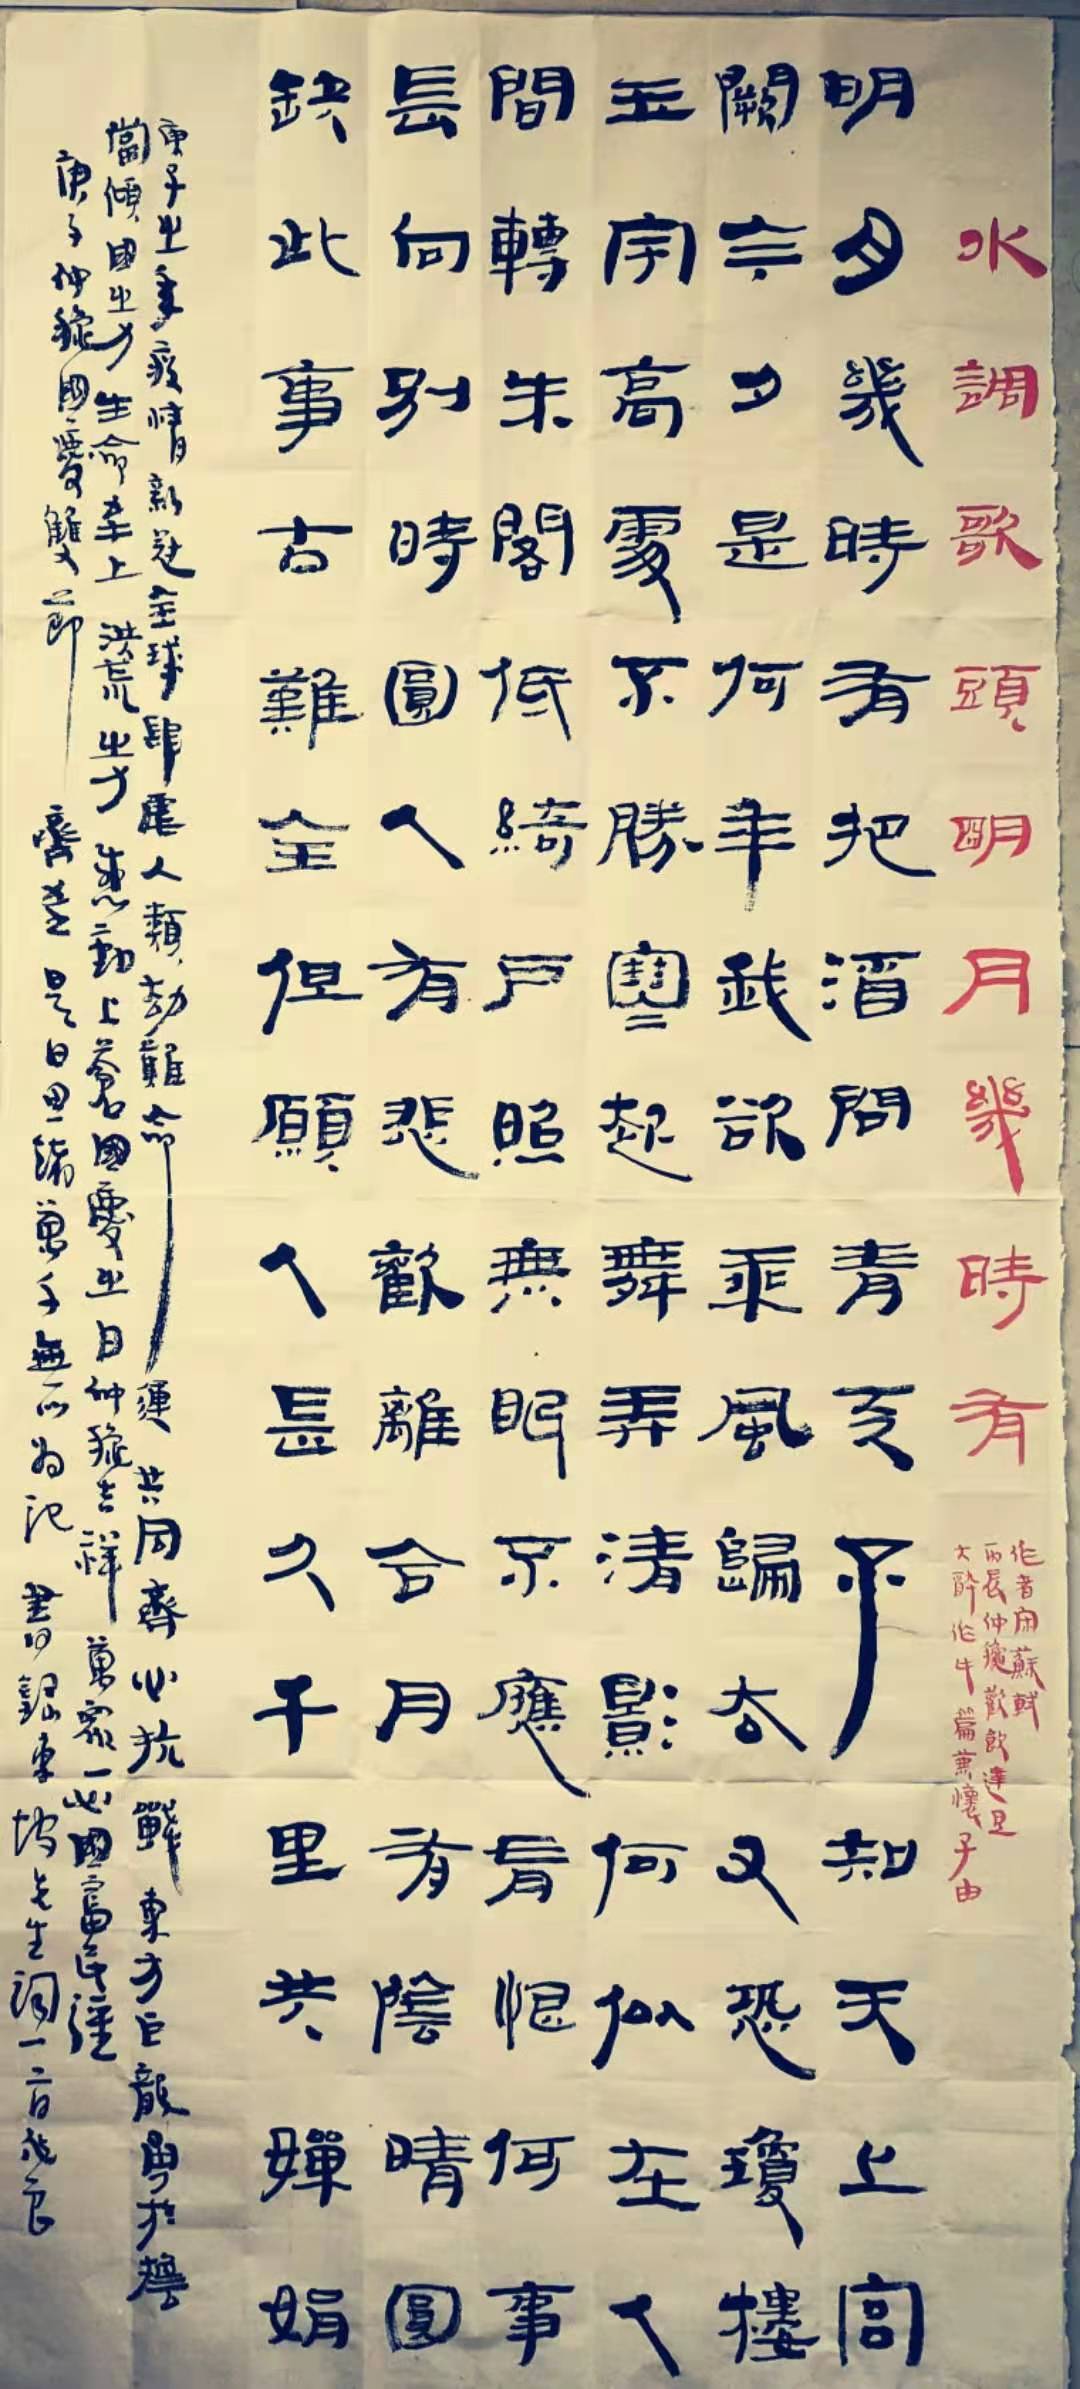 水調歌頭明月幾時有
作者宋蘇軾
丙辰仲秋歡飲達旦
大醉作此篇兼懷子由
明月幾時有把酒問青天不知天上宮
闕今夕是何年我欲乘風歸去又恐瓊樓
玉宇高處不勝寒起舞弄清影何似在人
間轉朱閣低綺戶照無眠不應有恨何事
長向別時圓人有悲歡離合月有陰晴圓
缺此事古難全但願人長久千里共嬋娟
庚子之年疫情新冠全球肆虐人類劫難命運共同齊心抗戰東方巨龍
當傾國之力生命至上洪荒之力感動上蒼國慶之日仲秋吉祥萬眾一心國富民強
庚子仲秋國慶雙節
是日思緒萬千無以為記書錄東坡先生詞一首